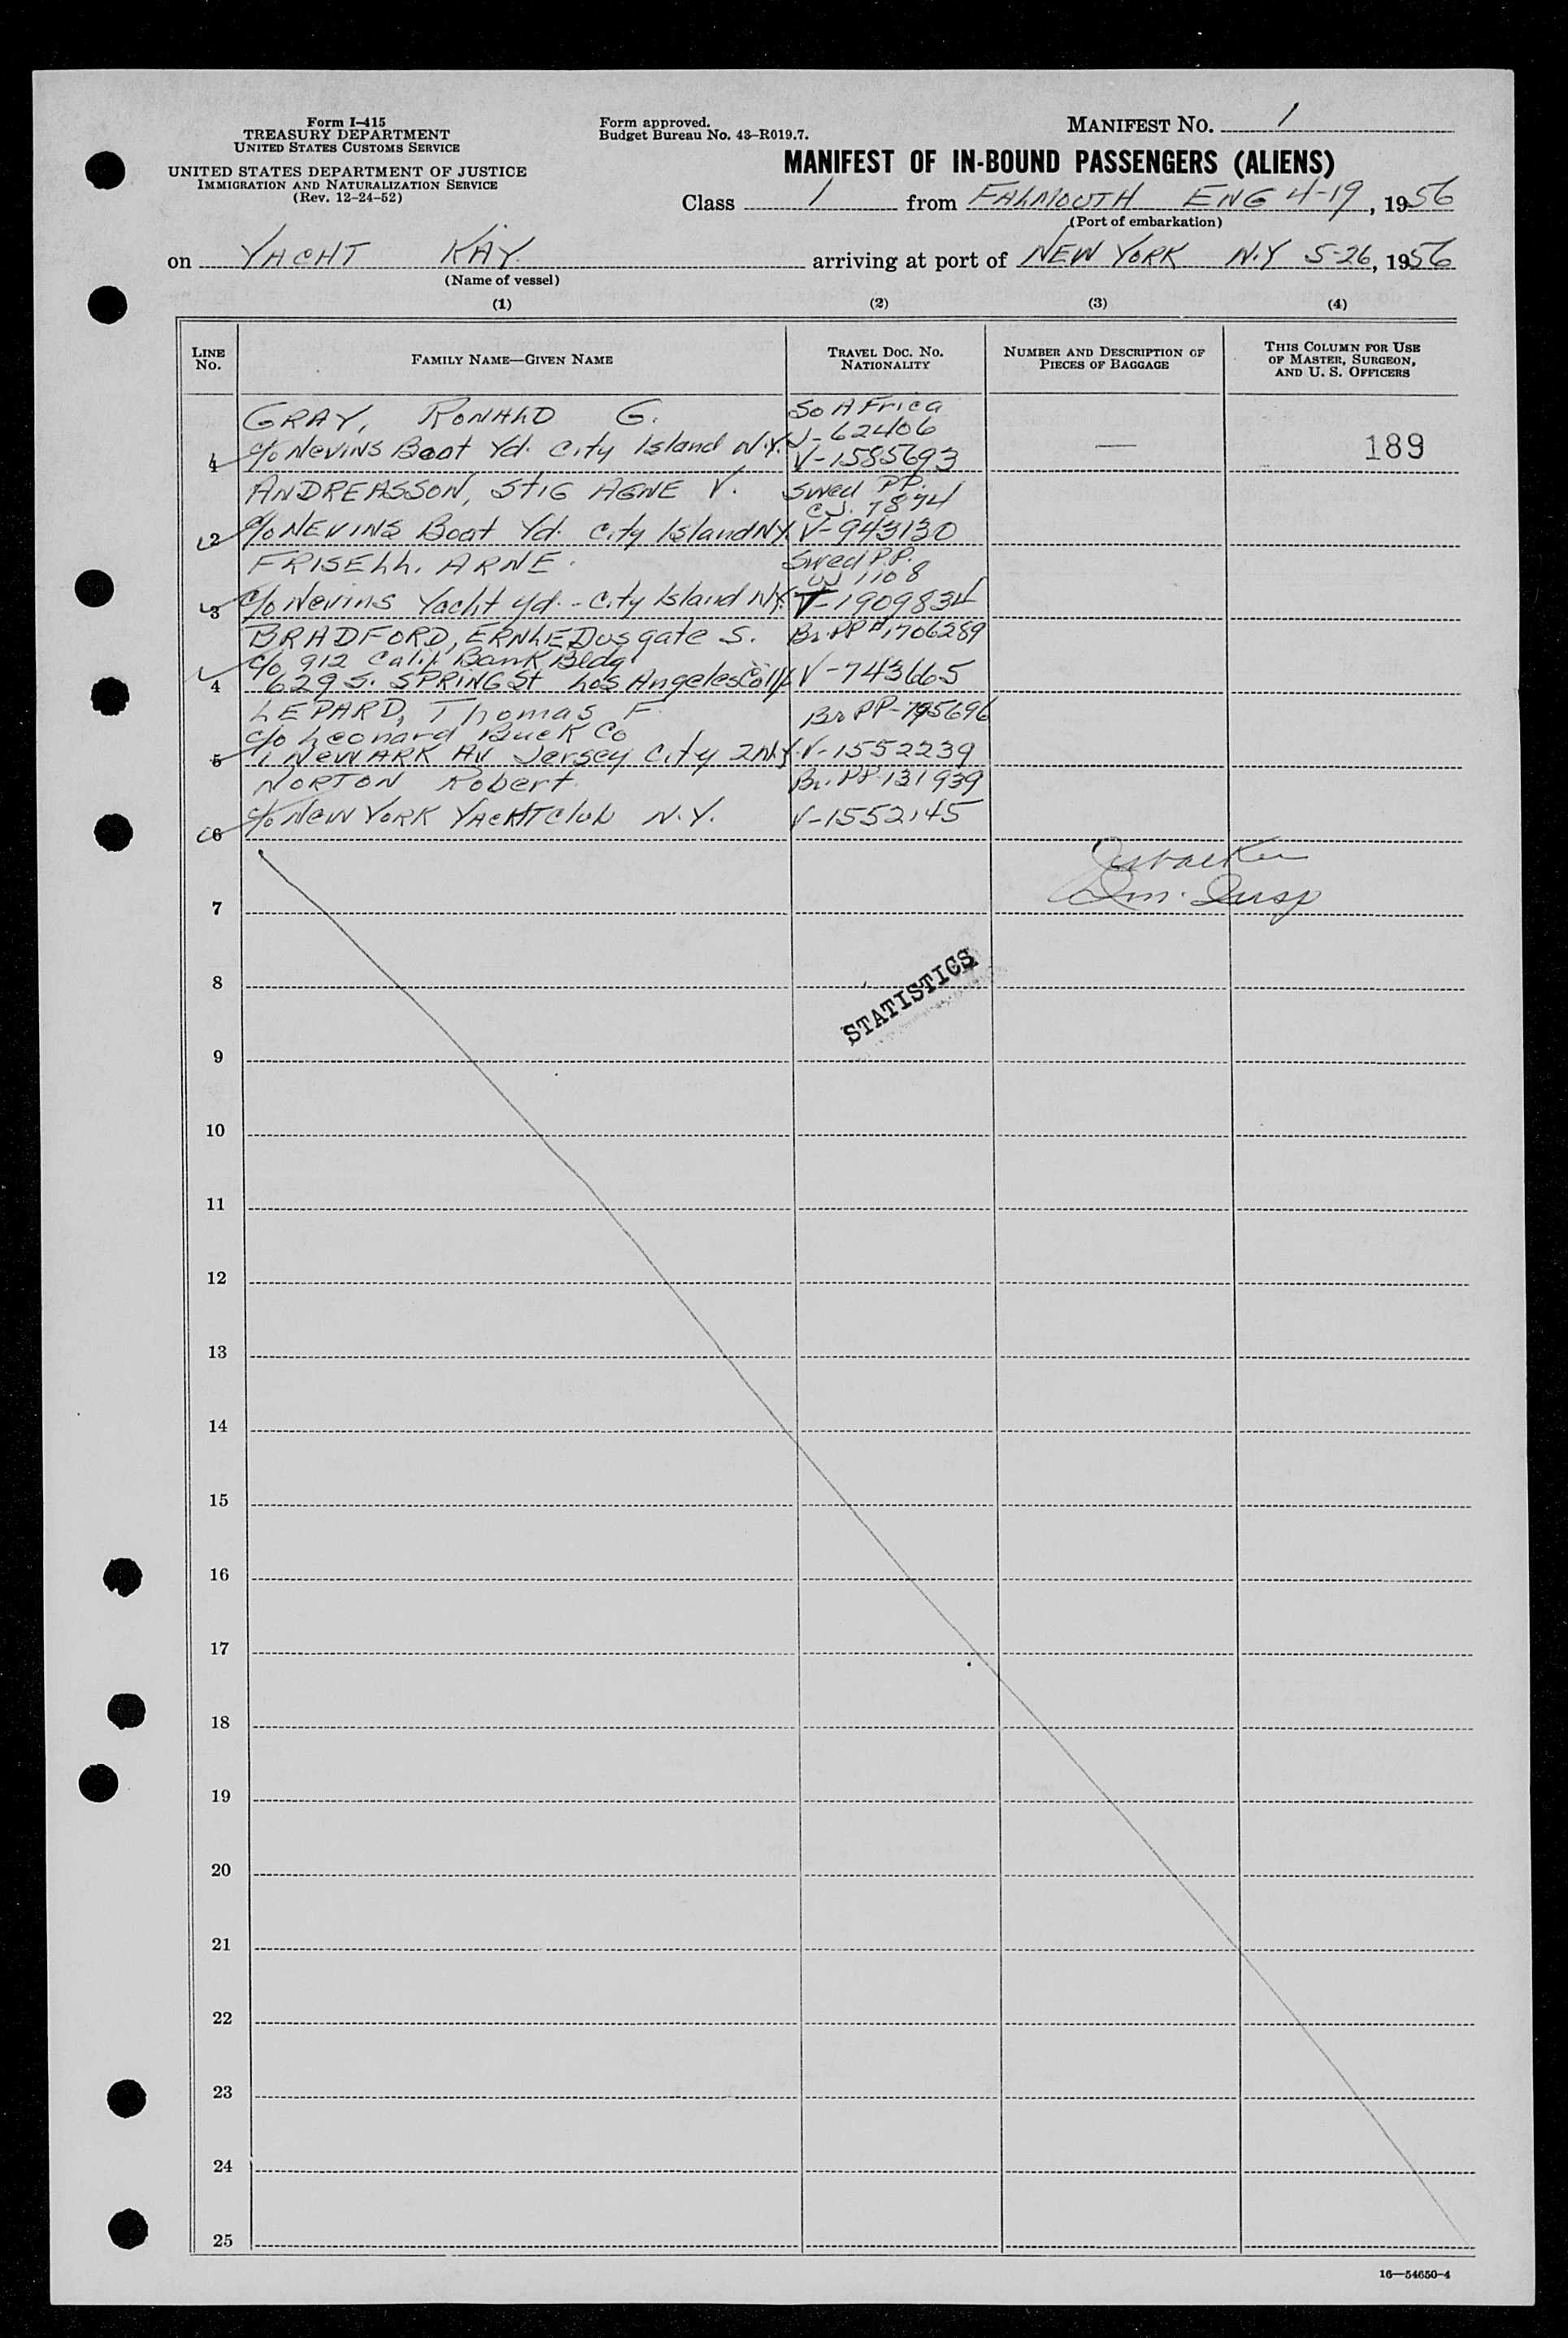 Form I-415
TREASURY DEPARTMENT
UNITED STATES CUSTOMS SERVICE
UNITED STATES DEPARTMENT OF JUSTICE
IMMIGRATION AND NATURALIZATION SERVICE
(Rev. 12-24-52)
Form approved.
Budget Bureau No. 43-R019.7.
MANIFEST NO. 1
MANIFEST OF IN-BOUND PASSENGERS (ALIENS)
Class 1 from FALMOUTH ENG 4-19, 1956
(Port of embarkation)
on YACHT KAY arriving at port of NEW YORK N.Y 5-26, 1956
(Name of vessel)
(1) (2) (3) (4)
LINE NO.
FAMILY NAME—GIVEN NAME
TRAVEL DOC. NO. NATIONALITY
NUMBER AND DESCRIPTION OF PIECES OF BAGGAGE
THIS COLUMN FOR USE OF MASTER, SURGEON, AND U. S. OFFICERS
GRAY, RONALD G. So AFrica
J-62406
1 c/o Nevins Boat Yd. City Island N.Y. V-1585693 — 189
ANDREASSON, STIG AGNE V. Swed PP.
7874
2 c/o NEVINS Boat Yd. City Island NY. V-943130
FRISELL, ARNE. Swed P.P.
1108
3 c/o Nevins Yacht yd. - City Island NY. V-1909834
BRADFORD, ERNLE Dusgate S. Br. PP# 1706289
c/o 912 Calif. Bank Bldg
4 629 S. SPRING St Los Angeles Calif V-743665
LEPARD, Thomas F. Br PP-795696
c/o Leonard Buck Co
5 1 NEWARK AV Jersey City 2 N.J. V-1552239
NORTON Robert. Br. PP 131939
6 c/o New YORK YACHT Club N.Y. V-1552145
Imm. Insp
7
8
STATISTICS
9
10
11
12
13
14
15
16
17
18
19
20
21
22
23
24
25
16—54650-4